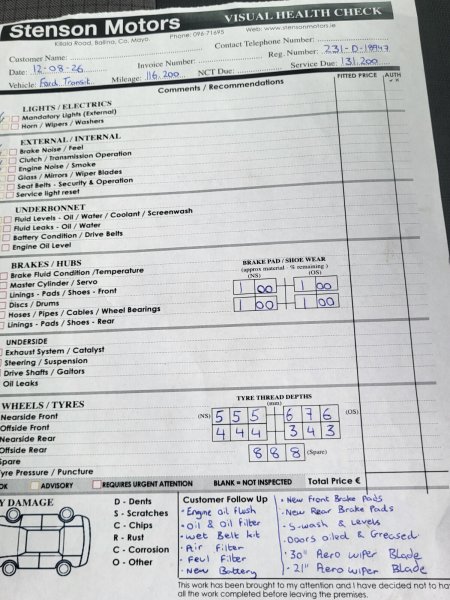 Stenson Motors
VISUAL HEALTH CHECK
Killala Road, Ballina, Co. Mayo. Phone: 096-71695 Web: www.stensonmotors.ie
Customer Name: Contact Telephone Number:
Date: 12-08-26 Invoice Number: Reg. Number: 231-D-
Vehicle: Ford Transit Mileage: 116,200 NCT Due: Service Due: 131,200
Comments / Recommendations FITTED PRICE AUTH
LIGHTS / ELECTRICS
Mandatory Lights (External)
Horn / Wipers / Washers
EXTERNAL / INTERNAL
Brake Noise / Feel
Clutch / Transmission Operation
Engine Noise / Smoke
Glass / Mirrors / Wiper Blades
Seat Belts - Security & Operation
Service light reset
UNDERBONNET
Fluid Levels - Oil / Water / Coolant / Screenwash
Fluid Leaks - Oil / Water
Battery Condition / Drive Belts
Engine Oil Level
BRAKES / HUBS
Brake Fluid Condition /Temperature
Master Cylinder / Servo
Linings - Pads / Shoes - Front
Discs / Drums
Hoses / Pipes / Cables / Wheel Bearings
Linings - Pads / Shoes - Rear
BRAKE PAD / SHOE WEAR
(approx material - % remaining )
(NS) (OS)
1 00 1 00
1 00 1 00
UNDERSIDE
Exhaust System / Catalyst
Steering / Suspension
Drive Shafts / Gaitors
Oil Leaks
WHEELS / TYRES
Nearside Front
Offside Front
Nearside Rear
Offside Rear
Spare
Tyre Pressure / Puncture
TYRE THREAD DEPTHS
(mm)
(NS) 5 5 5 6 7 6 (OS)
4 4 4 3 4 3
8 8 8 (Spare)
OK ADVISORY REQUIRES URGENT ATTENTION BLANK = NOT INSPECTED Total Price €
Y DAMAGE
D - Dents
S - Scratches
C - Chips
R - Rust
C - Corrosion
O - Other
Customer Follow Up
• Engine oil flush
• Oil & Oil filter
• Wet Belt kit
• Air filter
• Fuel Filter
• New Battery
• New Front Brake Pads
• New Rear Brake Pads
• S-wash & Levels
• Doors oiled & Greased
• 30" Aero wiper Blade
• 21" Aero wiper Blade
This work has been brought to my attention and I have decided not to ha
all the work completed before leaving the premises.